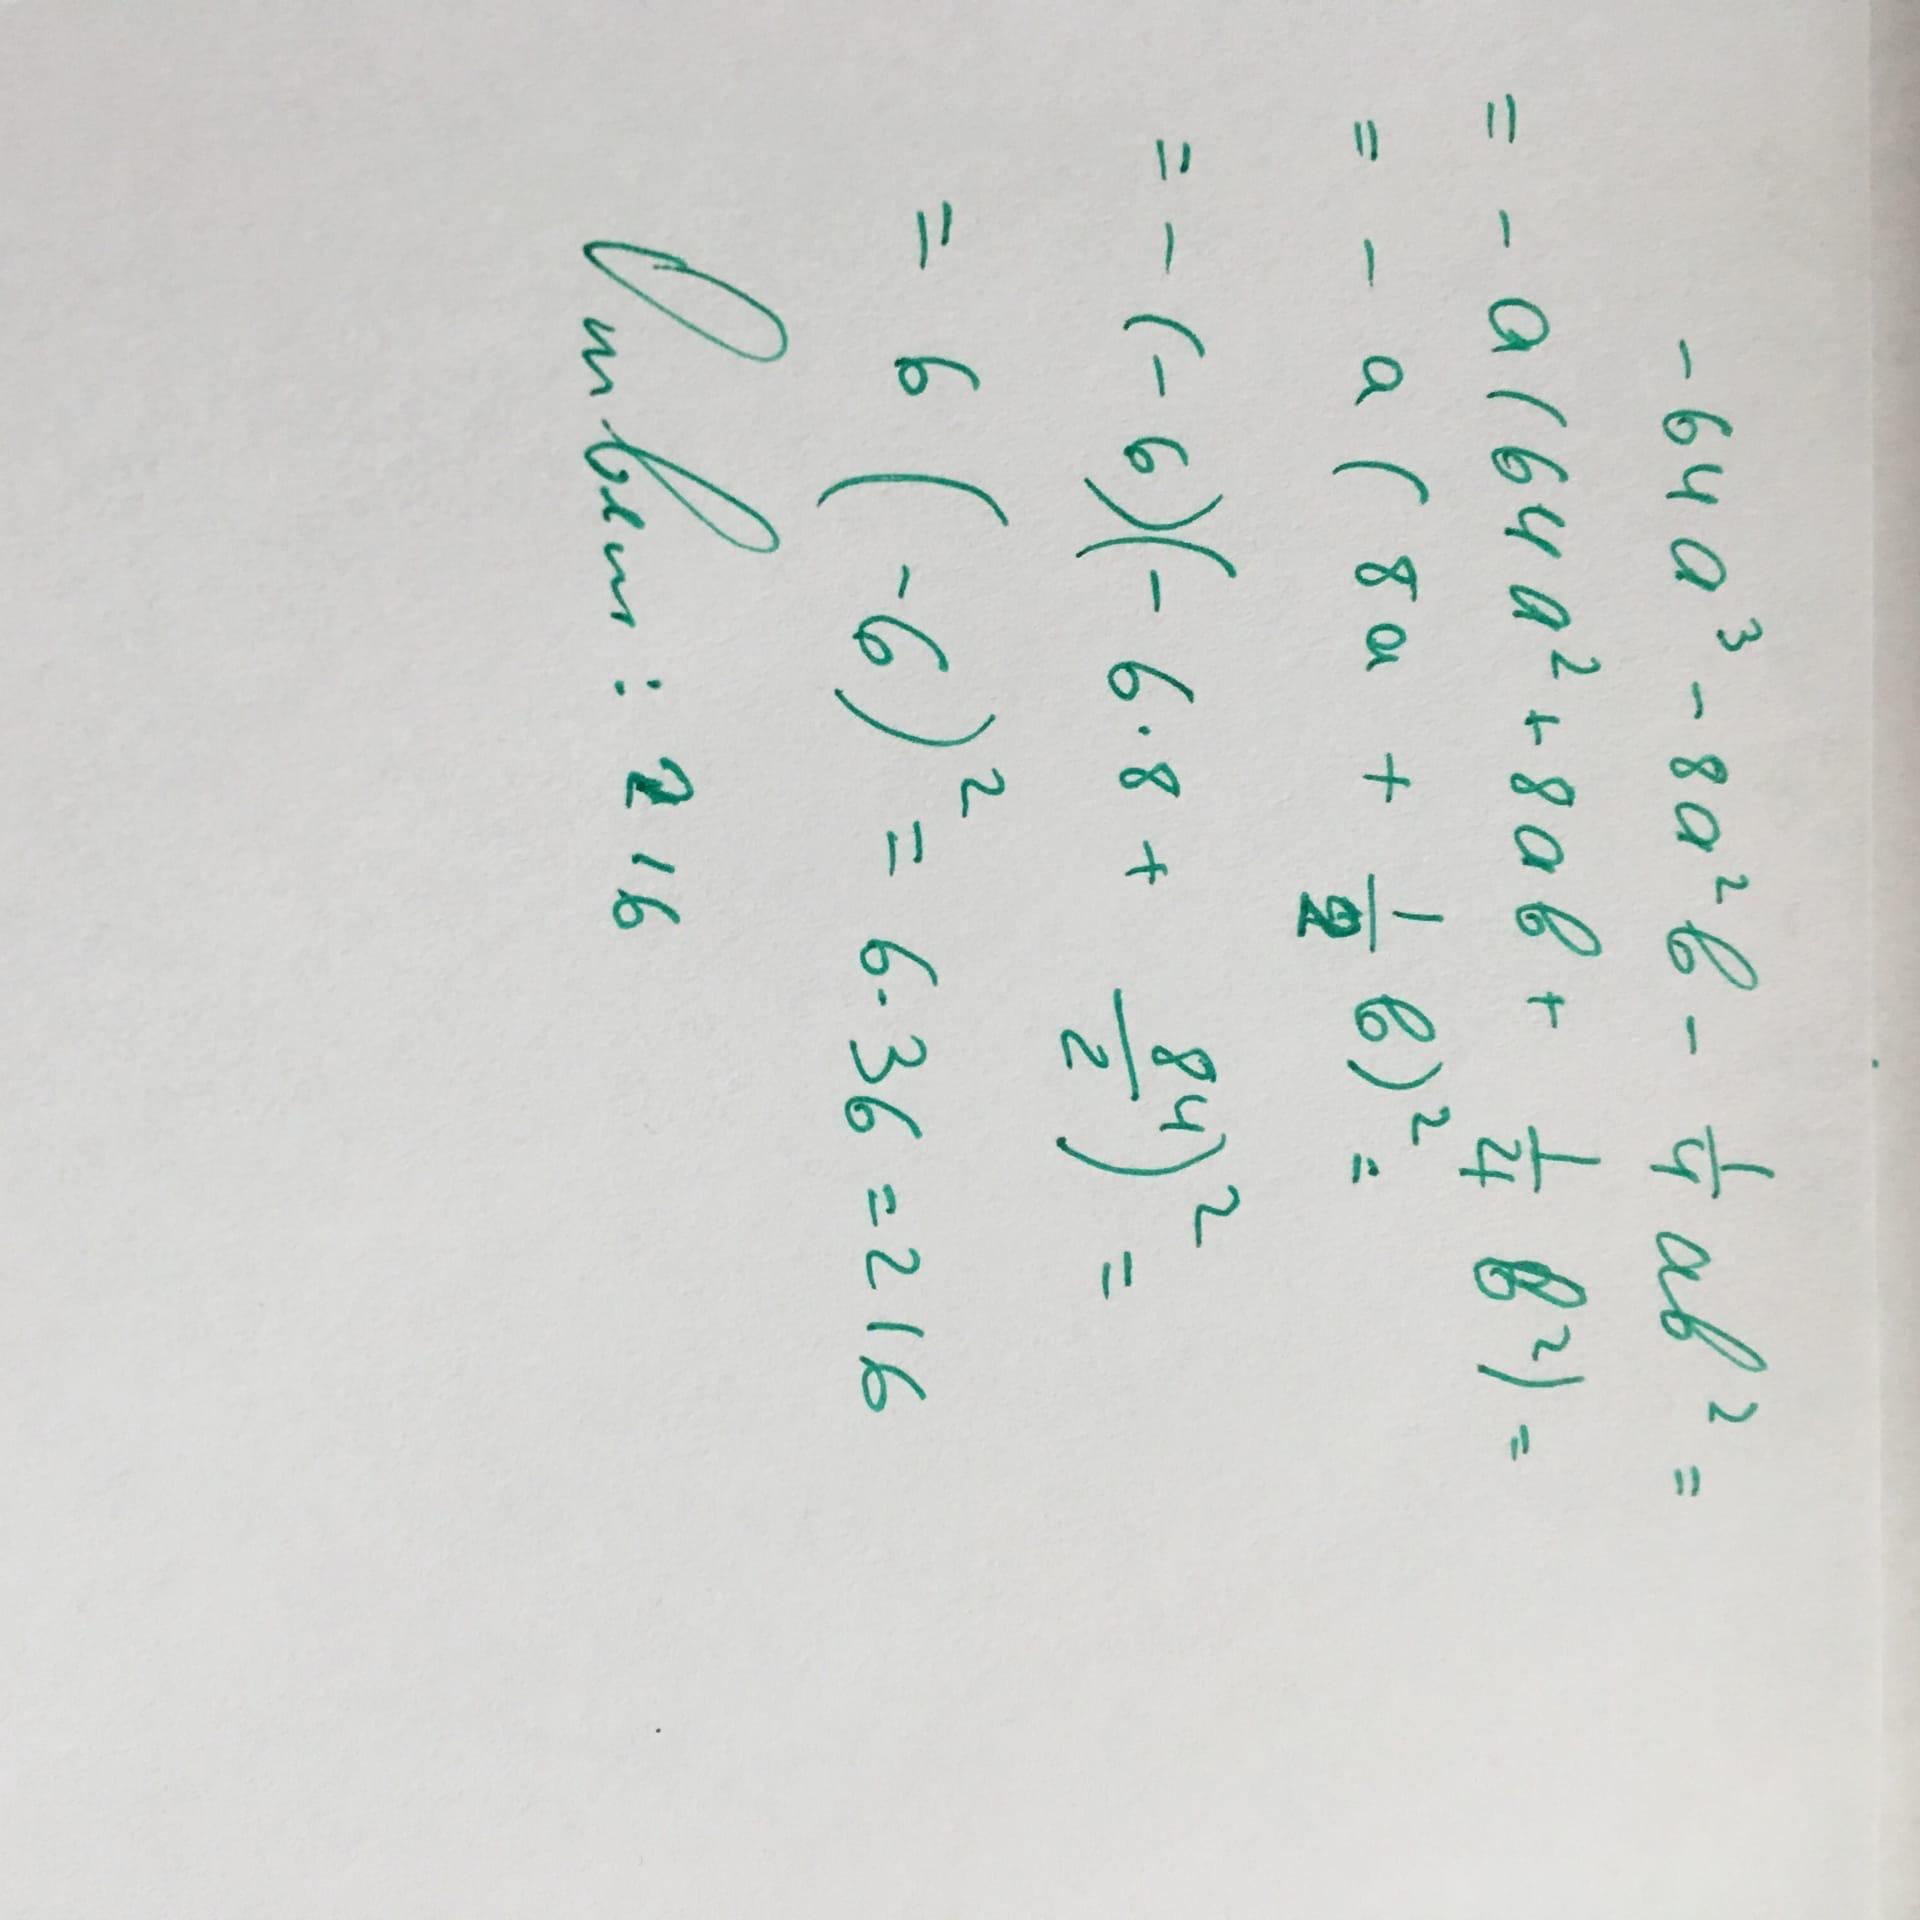 -64a³ - 8a²b - 1/4 ab² =
= -a(64a² + 8ab + 1/4 b²) =
= -a(8a + 1/2 b)² =
= -(-6)(-6·8 + 84/2)² =
= 6(-6)² = 6·36 = 216
Ответ: 216